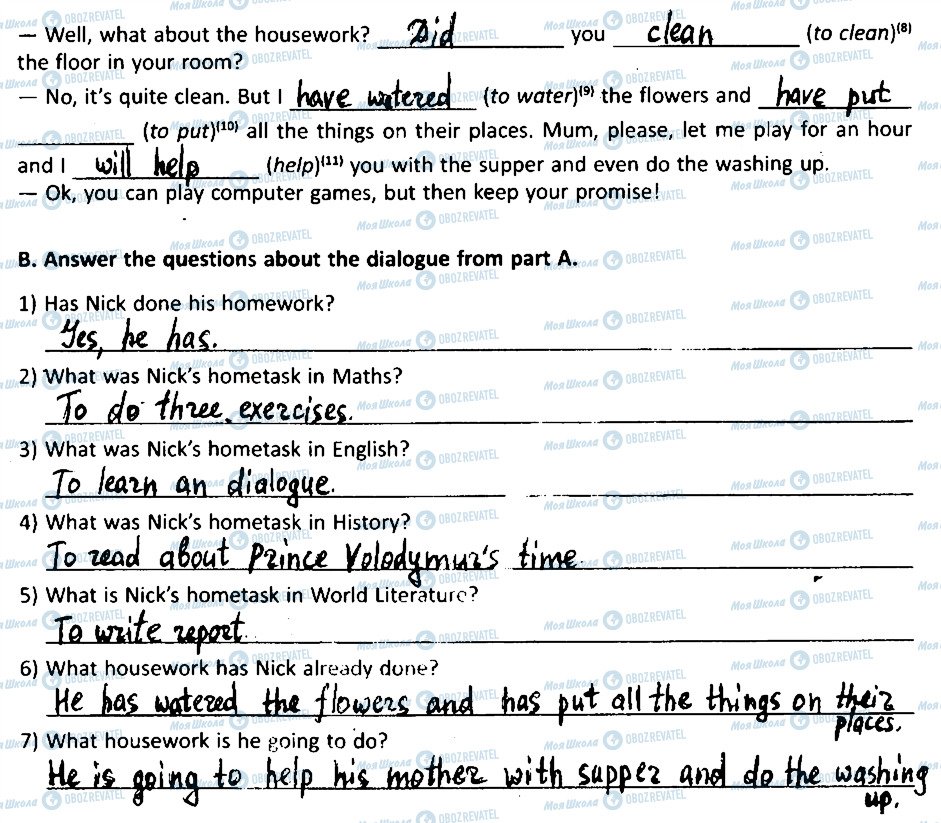 — Well, what about the housework? Did you clean (to clean)(8)
the floor in your room?
— No, it's quite clean. But I have watered (to water)(9) the flowers and have put
(to put)(10) all the things on their places. Mum, please, let me play for an hour
and I will help (help)(11) you with the supper and even do the washing up.
— Ok, you can play computer games, but then keep your promise!
B. Answer the questions about the dialogue from part A.
1) Has Nick done his homework?
Yes, he has.
2) What was Nick's hometask in Maths?
To do three exercises.
3) What was Nick's hometask in English?
To learn an dialogue.
4) What was Nick's hometask in History?
To read about Prince Volodymur's time
5) What is Nick's hometask in World Literature?
To write report
6) What housework has Nick already done?
He has watered the flowers and has put all the things on their
places.
7) What housework is he going to do?
He is going to help his mother with supper and do the washing
up.